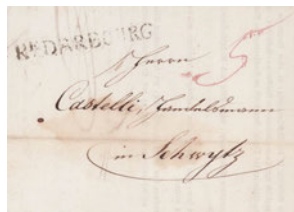 REDARBOURG
Herrn 5
Castelli, Handelsmann
in Schwytz